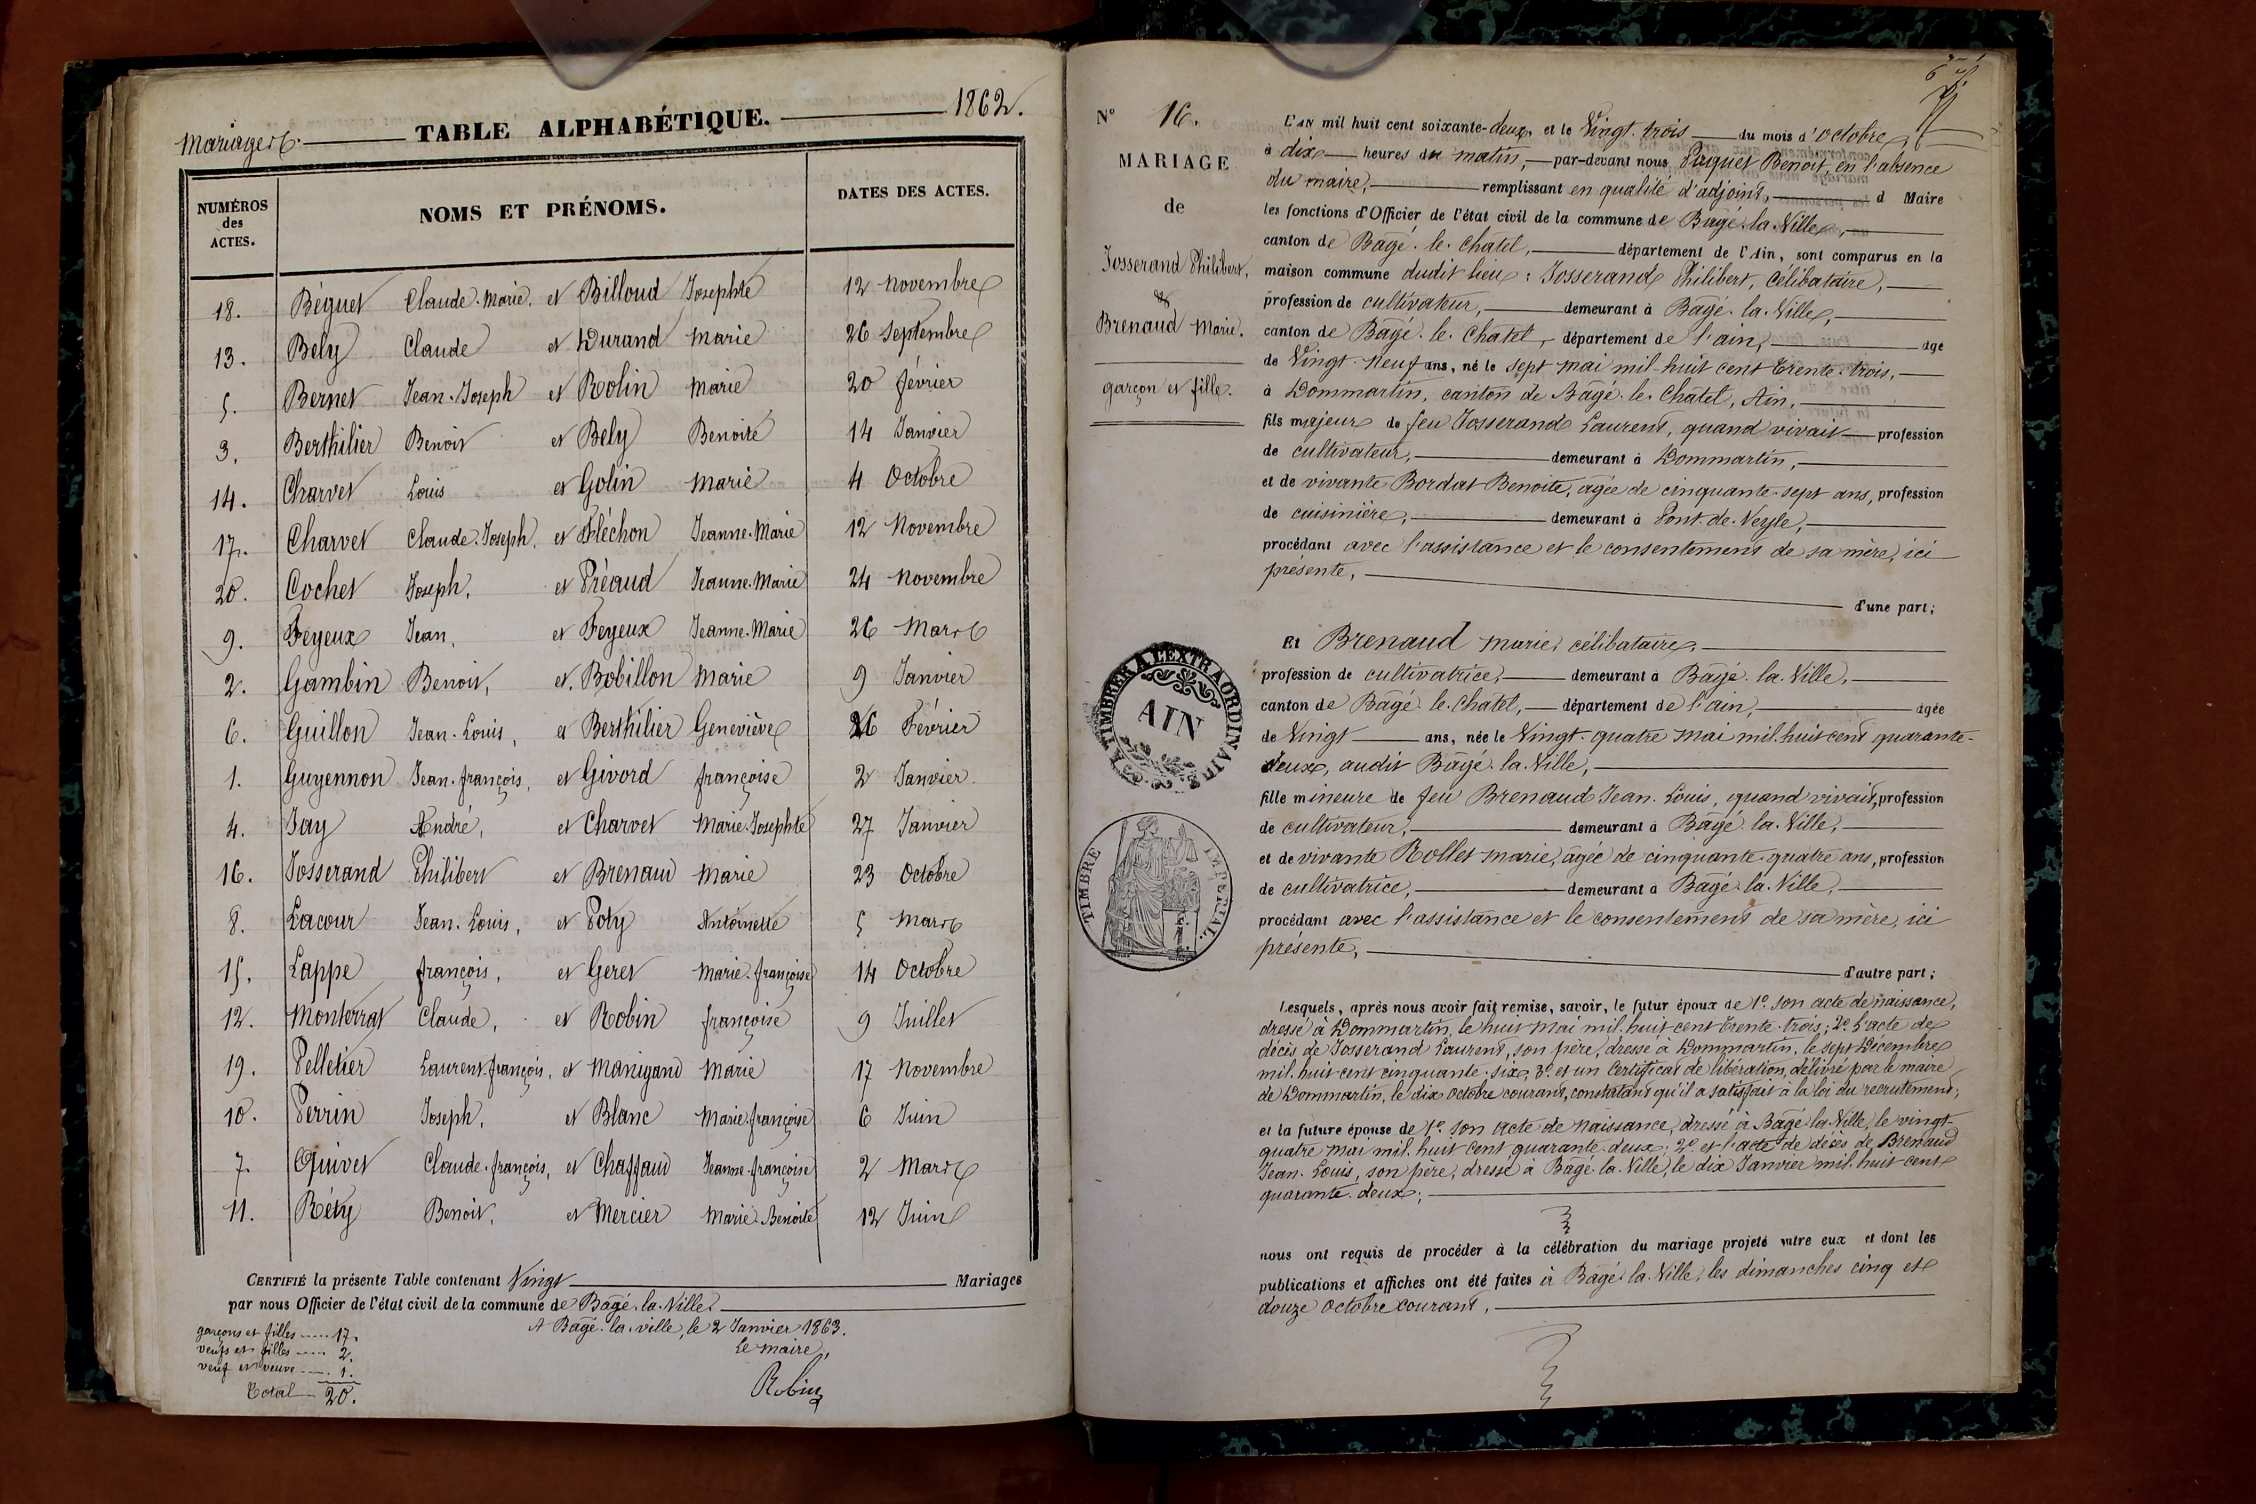 Mariages. TABLE ALPHABÉTIQUE. 1862.
NUMÉROS des ACTES. NOMS ET PRÉNOMS. DATES DES ACTES.
18. Béguet Claude-Marie, et Billoud Josephte 12 Novembre
13. Bély Claude et Durand Marie 26 Septembre
5. Bernet Jean-Joseph et Rolin Marie 20 février
3. Berthilier Benoit et Bely Benoite 14 Janvier
14. Charvet Louis et Golin Marie 4 Octobre
17. Charvet Claude-Joseph, et Fléchon Jeanne-Marie 12 Novembre
20. Cochet Joseph, et Préaud Jeanne-Marie 24 Novembre
9. Feyeux Jean, et Feyeux Jeanne-Marie 26 Mars
2. Gambin Benoit, et Bobillon Marie 9 Janvier
6. Guillon Jean-Louis, et Berthilier Geneviève 26 Février
1. Guyennon Jean-françois, et Givord françoise 2 Janvier
4. Jay André, et Charvet Marie-Josephte 27 Janvier
16. Josserand Philibert et Brenaud Marie 23 Octobre
8. Lacour Jean-Louis, et Poty Antoinette 5 Mars
15. Lappe françois, et Geret Marie-françoise 14 Octobre
12. Monterrat Claude, et Robin françoise 9 Juillet
19. Pelletier Laurent-françois, et Manigand Marie 17 Novembre
10. Perrin Joseph, et Blanc Marie-françoise 6 Juin
7. Quivet Claude-françois, et Chaffaud Jeanne-françoise 2 Mars
11. Réty Benoit, et Mercier Marie-Benoite 12 Juin
CERTIFIÉ la présente Table contenant Vingt Mariages
par nous Officier de l'état civil de la commune de Bâgé-la-Ville.
A Bâgé-la-ville, le 2 Janvier 1863.
Le maire,
Robin
garçons et filles 17.
veufs et filles 2.
veuf et veuve 1.
Total 20.
N° 16.
MARIAGE
de
Josserand Philibert,
et
Brenaud Marie.
garçon et fille.
TIMBRER A L'EXTRAORDINAIRE
AIN
TIMBRE IMPÉRIAL.
L'AN mil huit cent soixante-deux, et le Vingt-trois du mois d'octobre,
à dix heures du matin, par-devant nous Paquet Benoit, en l'absence
du maire, remplissant en qualité d'adjoint, d Maire
les fonctions d'Officier de l'état civil de la commune de Bâgé-la-Ville,
canton de Bâgé-le-Châtel, département de l'Ain, sont comparus en la
maison commune dudit lieu : Josserand Philibert, célibataire,
profession de cultivateur, demeurant à Bâgé-la-Ville,
canton de Bâgé-le-Châtel, département de l'ain, âgé
de Vingt-neuf ans, né le sept mai mil-huit cent trente-trois,
à Dommartin, canton de Bâgé-le-Châtel, Ain,
fils majeur de feu Josserand Laurent, quand vivait profession
de cultivateur, demeurant à Dommartin,
et de vivante Bordat Benoite, âgée de cinquante-sept ans, profession
de cuisinière, demeurant à Pont-de-Veyle,
procédant avec l'assistance et le consentement de sa mère, ici
présente,
d'une part;
Et Brenaud Marie, célibataire,
profession de cultivatrice, demeurant à Bâgé-la-Ville,
canton de Bâgé-le-Châtel, département de l'ain, âgée
de Vingt ans, née le Vingt-quatre mai mil-huit cent quarante-
deux, audit Bâgé-la-Ville,
fille mineure de feu Brenaud Jean-Louis, quand vivait, profession
de cultivateur, demeurant à Bâgé-la-Ville,
et de vivante Rollet Marie, âgée de cinquante-quatre ans, profession
de cultivatrice, demeurant à Bâgé-la-Ville,
procédant avec l'assistance et le consentement de sa mère, ici
présente,
d'autre part;
Lesquels, après nous avoir fait remise, savoir, le futur époux de 1° son acte de naissance,
dressé à Dommartin, le huit mai mil-huit cent trente-trois; 2° l'acte de
décès de Josserand Laurent, son père, dressé à Dommartin, le sept Décembre
mil-huit cent cinquante-six, 3° et un certificat de libération, délivré par le maire
de Dommartin, le dix octobre courant, constatant qu'il a satisfait à la loi du recrutement;
et la future épouse de 1° son acte de naissance, dressé à Bâgé-la-Ville, le vingt-
quatre mai mil-huit cent quarante-deux; 2° et l'acte de décès de Brenaud
Jean-Louis, son père, dressé à Bâgé-la-Ville, le dix Janvier mil-huit cent
quarante-deux;
nous ont requis de procéder à la célébration du mariage projeté entre eux et dont les
publications et affiches ont été faites à Bâgé-la-Ville, les dimanches cinq et
douze octobre courant,